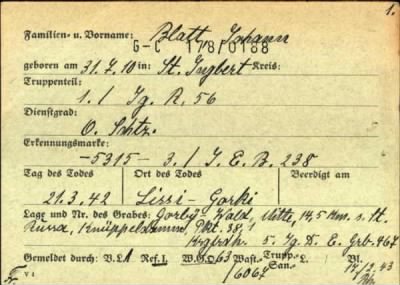 1.
Familien- u. Vorname: Blatt, Johann
G-C 178/0188
geboren am 31.7.10 in: St. Ingbert Kreis:
Truppenteil:
1./ Jg. R. 56
Dienstgrad:
O. Schtz.
Erkennungsmarke:
-5315- 3./ I.E.B. 238
Tag des Todes Ort des Todes Beerdigt am
21.3.42 Lissi-Gorki
Lage und Nr. des Grabes: Gorby-Wald, Mitte, 14,5 km s. St.
Russa, Knüppeldamm, Pkt. 38,1
5. Jg. D. E. Grb. 467
Gemeldet durch: V.L.1 Ref. 1. W.G.O. 63 Wast. Trupp. L. Bl.
/6067 San.
17/2.43
V 1